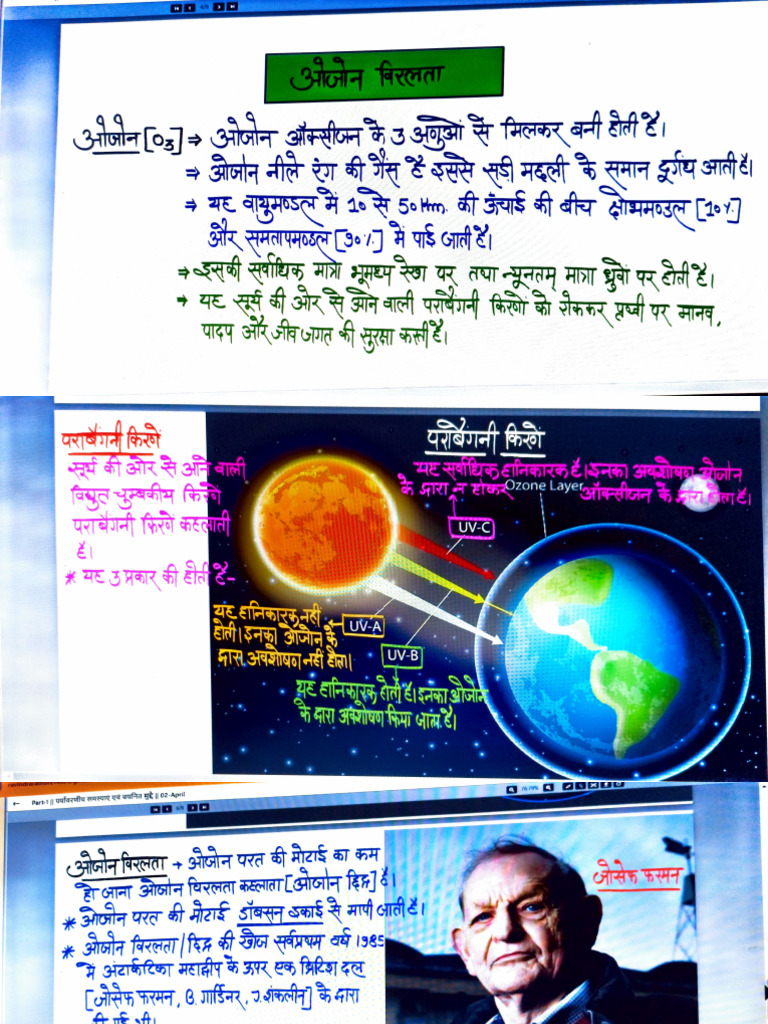 ओजोन विरलता
ओजोन [O3] ⇒ ओजोन ऑक्सीजन के 3 अणुओं से मिलकर बनी होती है।
⇒ ओजोन नीले रंग की गैस है इससे सड़ी मछली के समान दुर्गंध आती है।
⇒ यह वायुमण्डल में 10 से 50 Km. की ऊँचाई की बीच क्षोभमण्डल [10%]
और समतापमण्डल [90%] में पाई जाती है।
⇒ इसकी सर्वाधिक मात्रा भूमध्य रेखा पर तथा न्यूनतम् मात्रा ध्रुवों पर होती है।
→ यह सूर्य की ओर से आने वाली पराबैंगनी किरणों को रोककर पृथ्वी पर मानव,
पादप और जीव जगत की सुरक्षा करती है।
पराबैंगनी किरणें
सूर्य की ओर से आने वाली
विद्युत चुम्बकीय किरणें
पराबैंगनी किरणें कहलाती
हैं।
* यह 3 प्रकार की होती है-
पराबैंगनी किरणें
यह सर्वाधिक हानिकारक है। इनका अवशोषण ओजोन
के द्वारा न होकर ऑक्सीजन के द्वारा होता है।
Ozone Layer
UV-C
यह हानिकारक नहीं
होती। इनका ओजोन के
द्वारा अवशोषण नहीं होता।
UV-A
UV-B
यह हानिकारक होती है। इनका ओजोन
के द्वारा अवशोषण किया जाता है।
Part-1 || पर्यावरणीय समस्याए एवं चयनित मुद्दे || 02-April
ओजोन विरलता → ओजोन परत की मोटाई का कम
हो जाना ओजोन विरलता कहलाता [ओजोन छिद्र] है।
* ओजोन परत की मोटाई डॉबसन इकाई से मापी जाती है।
* ओजोन विरलता/छिद्र की खोज सर्वप्रथम वर्ष 1985
में अंटार्कटिका महाद्वीप के ऊपर एक ब्रिटिश दल
[जोसेफ फरमन, B. गार्डिनर, J. शंकलीन] के द्वारा
की गई थी।
जोसेफ फरमन